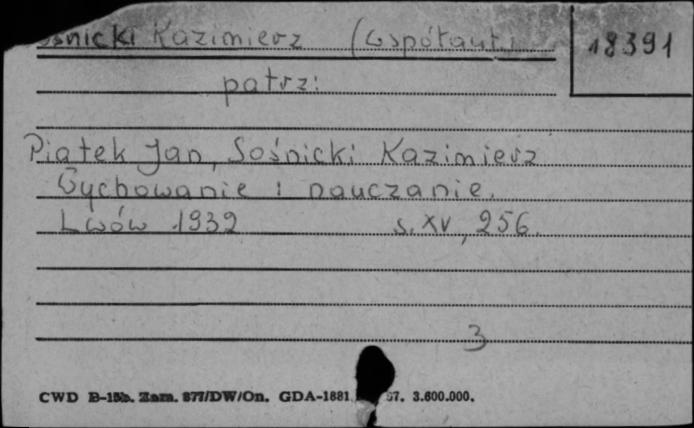 ośnicki Kazimierz (współaut.)
18391
patrz:
Piątek Jan, Sośnicki Kazimierz
Wychowanie i nauczanie.
Lwów 1932 s. XV, 256.
3
CWD B-15b. Zam. 877/DW/On. GDA-1881 67. 3.600.000.